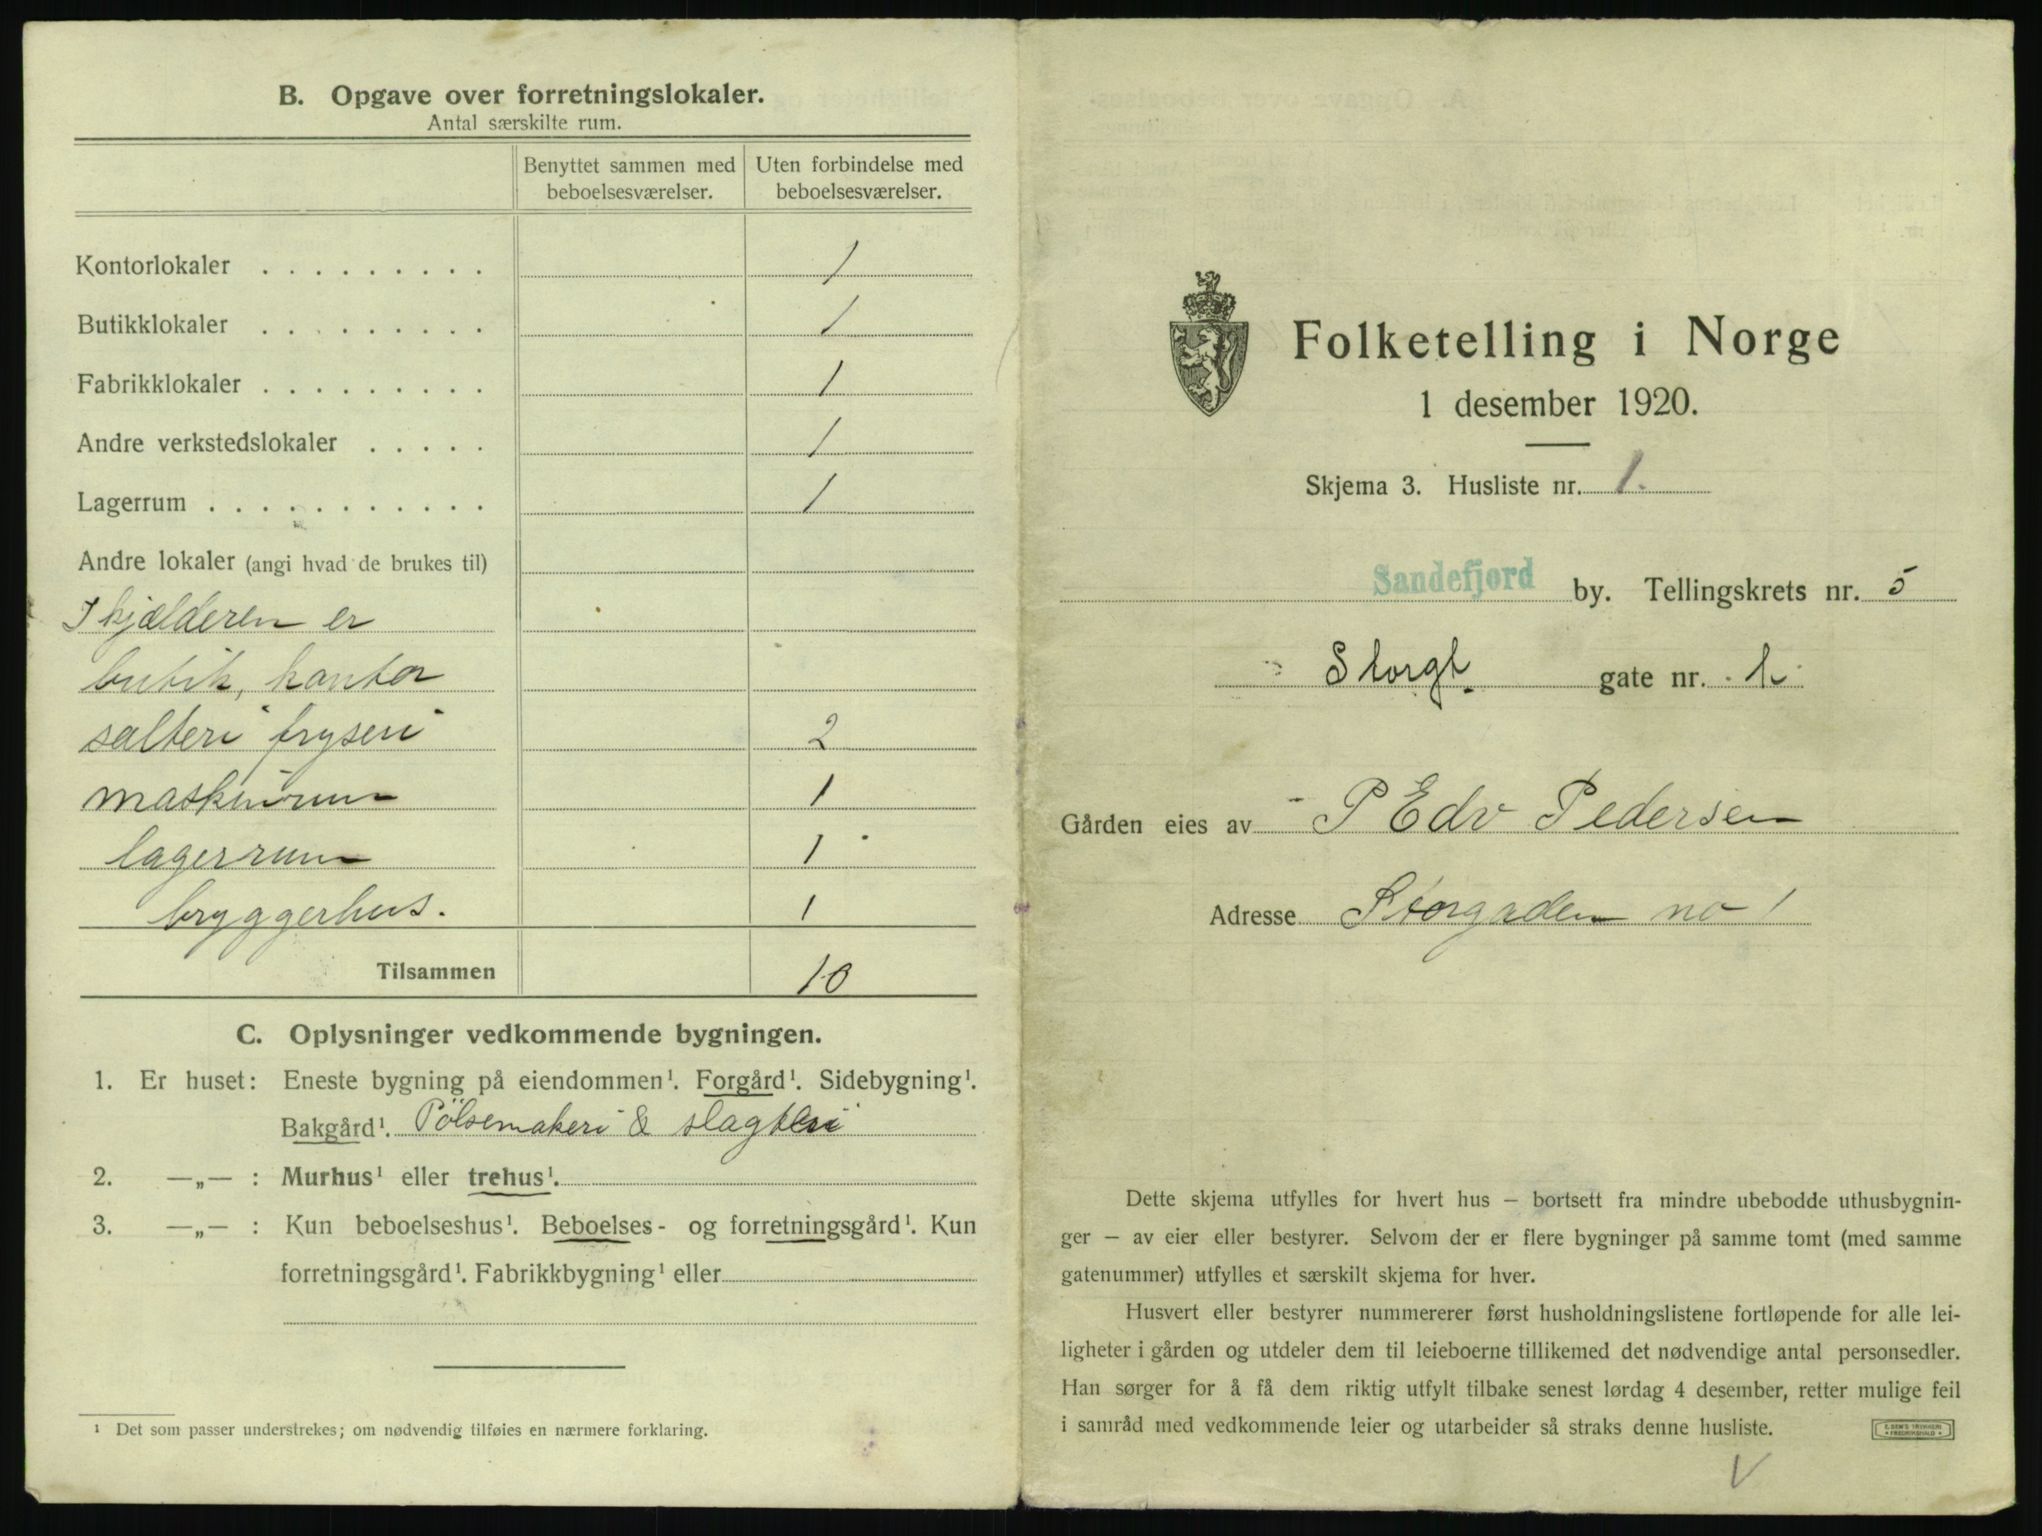 B. Opgave over forretningslokaler.
Antal særskilte rum.
Benyttet sammen med beboelsesværelser.
Uten forbindelse med beboelsesværelser.
Kontorlokaler . . . . . . . . . 1
Butikklokaler . . . . . . . . . 1
Fabrikklokaler . . . . . . . . . 1
Andre verkstedslokaler . . . . . 1
Lagerrum . . . . . . . . . . . . 1
Andre lokaler (angi hvad de brukes til)
I kjælderen er
butik, kontor
salteri fryseri 2
maskinrum 1
lagerrum 1
bryggerhus. 1
Tilsammen 10
C. Oplysninger vedkommende bygningen.
1. Er huset: Eneste bygning på eiendommen¹. Forgård¹. Sidebygning¹.
Bakgård¹. Pölsemakeri & slagteri
2. —„— : Murhus¹ eller trehus¹.
3. —„— : Kun beboelseshus¹. Beboelses- og forretningsgård¹. Kun
forretningsgård¹. Fabrikkbygning¹ eller
¹ Det som passer understrekes; om nødvendig tilføies en nærmere forklaring.
Folketelling i Norge
1 desember 1920.
Skjema 3. Husliste nr. 1.
Sandefjord by. Tellingskrets nr. 5
Storgt. gate nr. 1
Gården eies av P Edv Pedersen
Adresse Storgaden no 1
Dette skjema utfylles for hvert hus – bortsett fra mindre ubebodde uthusbygnin-
ger – av eier eller bestyrer. Selvom der er flere bygninger på samme tomt (med samme
gatenummer) utfylles et særskilt skjema for hver.
Husvert eller bestyrer nummererer først husholdningslistene fortløpende for alle lei-
ligheter i gården og utdeler dem til leieboerne tillikemed det nødvendige antal personsedler.
Han sørger for å få dem riktig utfylt tilbake senest lørdag 4 desember, retter mulige feil
i samråd med vedkommende leier og utarbeider så straks denne husliste.
E. SEM'S TRYKKERI
FREDRIKSHALD